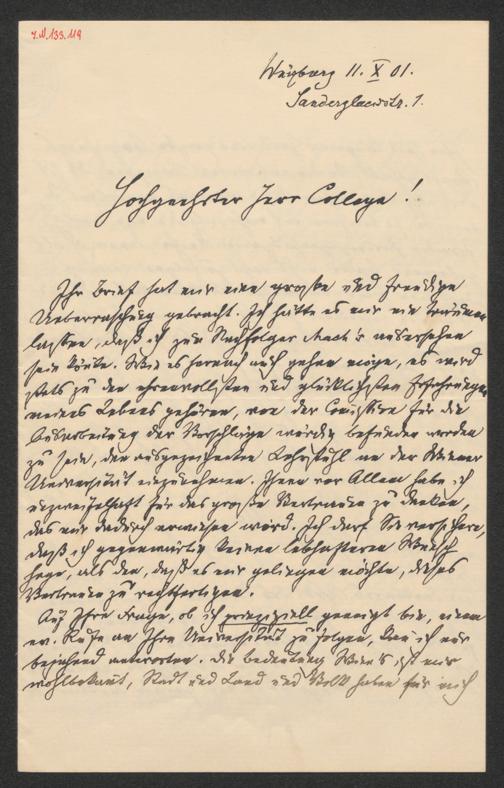 I.N. 133.119
Würzburg 11. X 01.
Sanderglacisstr. 1.
Hochgeehrter Herr College!
Ihr Brief hat mir eine große und freudige
Ueberraschung gebracht. Ich hätte es mir nie träumen
lassen, daß ich zum Nachfolger Mach's ausersehen
sein könnte. Wie es hernach auch gehen möge, es wird
stets zu den ehrenvollsten und glücklichsten Erfahrungen
meines Lebens gehören, von der Comission für die
Ausarbeitung der Vorschläge würdig befunden worden
zu sein, den ausgezeichneten Lehrstuhl an der Wiener
Universität einzunehmen. Ihnen vor Allem habe ich
unzweifelhaft für das große Vertrauen zu danken,
das mir dadurch erwiesen wird. Ich darf Sie versichern,
daß ich gegenwärtig keinen lebhafteren Wunsch
hege, als den, daß es mir gelingen möchte, dieses
Vertrauen zu rechtfertigen.
Auf Ihre Frage, ob ich prinzipiell geneigt bin, einem
ev. Rufe an Ihre Universität zu folgen, kann ich nur
bejahend antworten. Die Bedeutung Wien's ist mir
wohlbekannt, Stadt und Land und Volk haben für mich